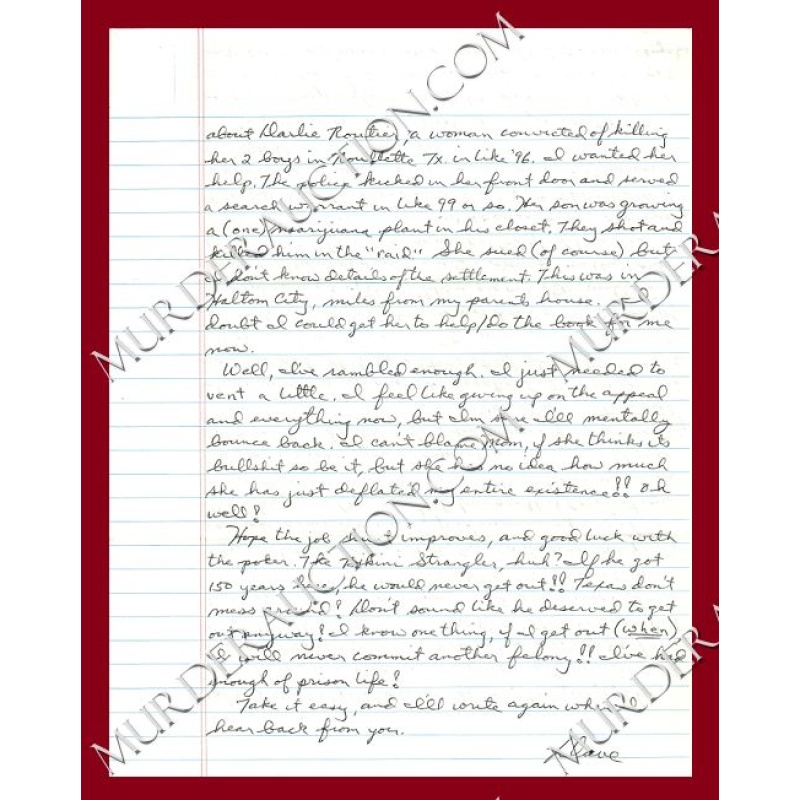 about Darlie Routier, a woman convicted of killing
her 2 boys in Roullette Tx. in like '96. I wanted her
help. The police kicked in her front door and served
a search warrant in like 99 or so. Her son was growing
a (one) marijuana plant in his closet. They shot and
killed him in the "raid" She sued (of course) but
I don't know details of the settlement. This was in
Haltom City, miles from my parents house. I
doubt I could get her to help/do the book for me
now.
Well, I've rambled enough. I just needed to
vent a little. I feel like giving up on the appeal
and everything now, but I'm sure I'll mentally
bounce back. I can't blame Mom, if she thinks its
bullshit so be it, but she has no idea how much
she has just deflated my entire existence!! Oh
well!
Hope the job hunt improves, and good luck with
the poker. The Bikini Strangler, huh? If he got
150 years here, he would never get out!! Texas don't
mess around! Don't sound like he deserved to get
out anyway! I know one thing, if I get out (when),
I will never commit another felony!! I've had
enough of prison life!
Take it easy, and I'll write again when I
hear back from you.
Dave
MURDERAUCTION.COM
MURDERAUCTION.COM
MURDERAUCTION.COM